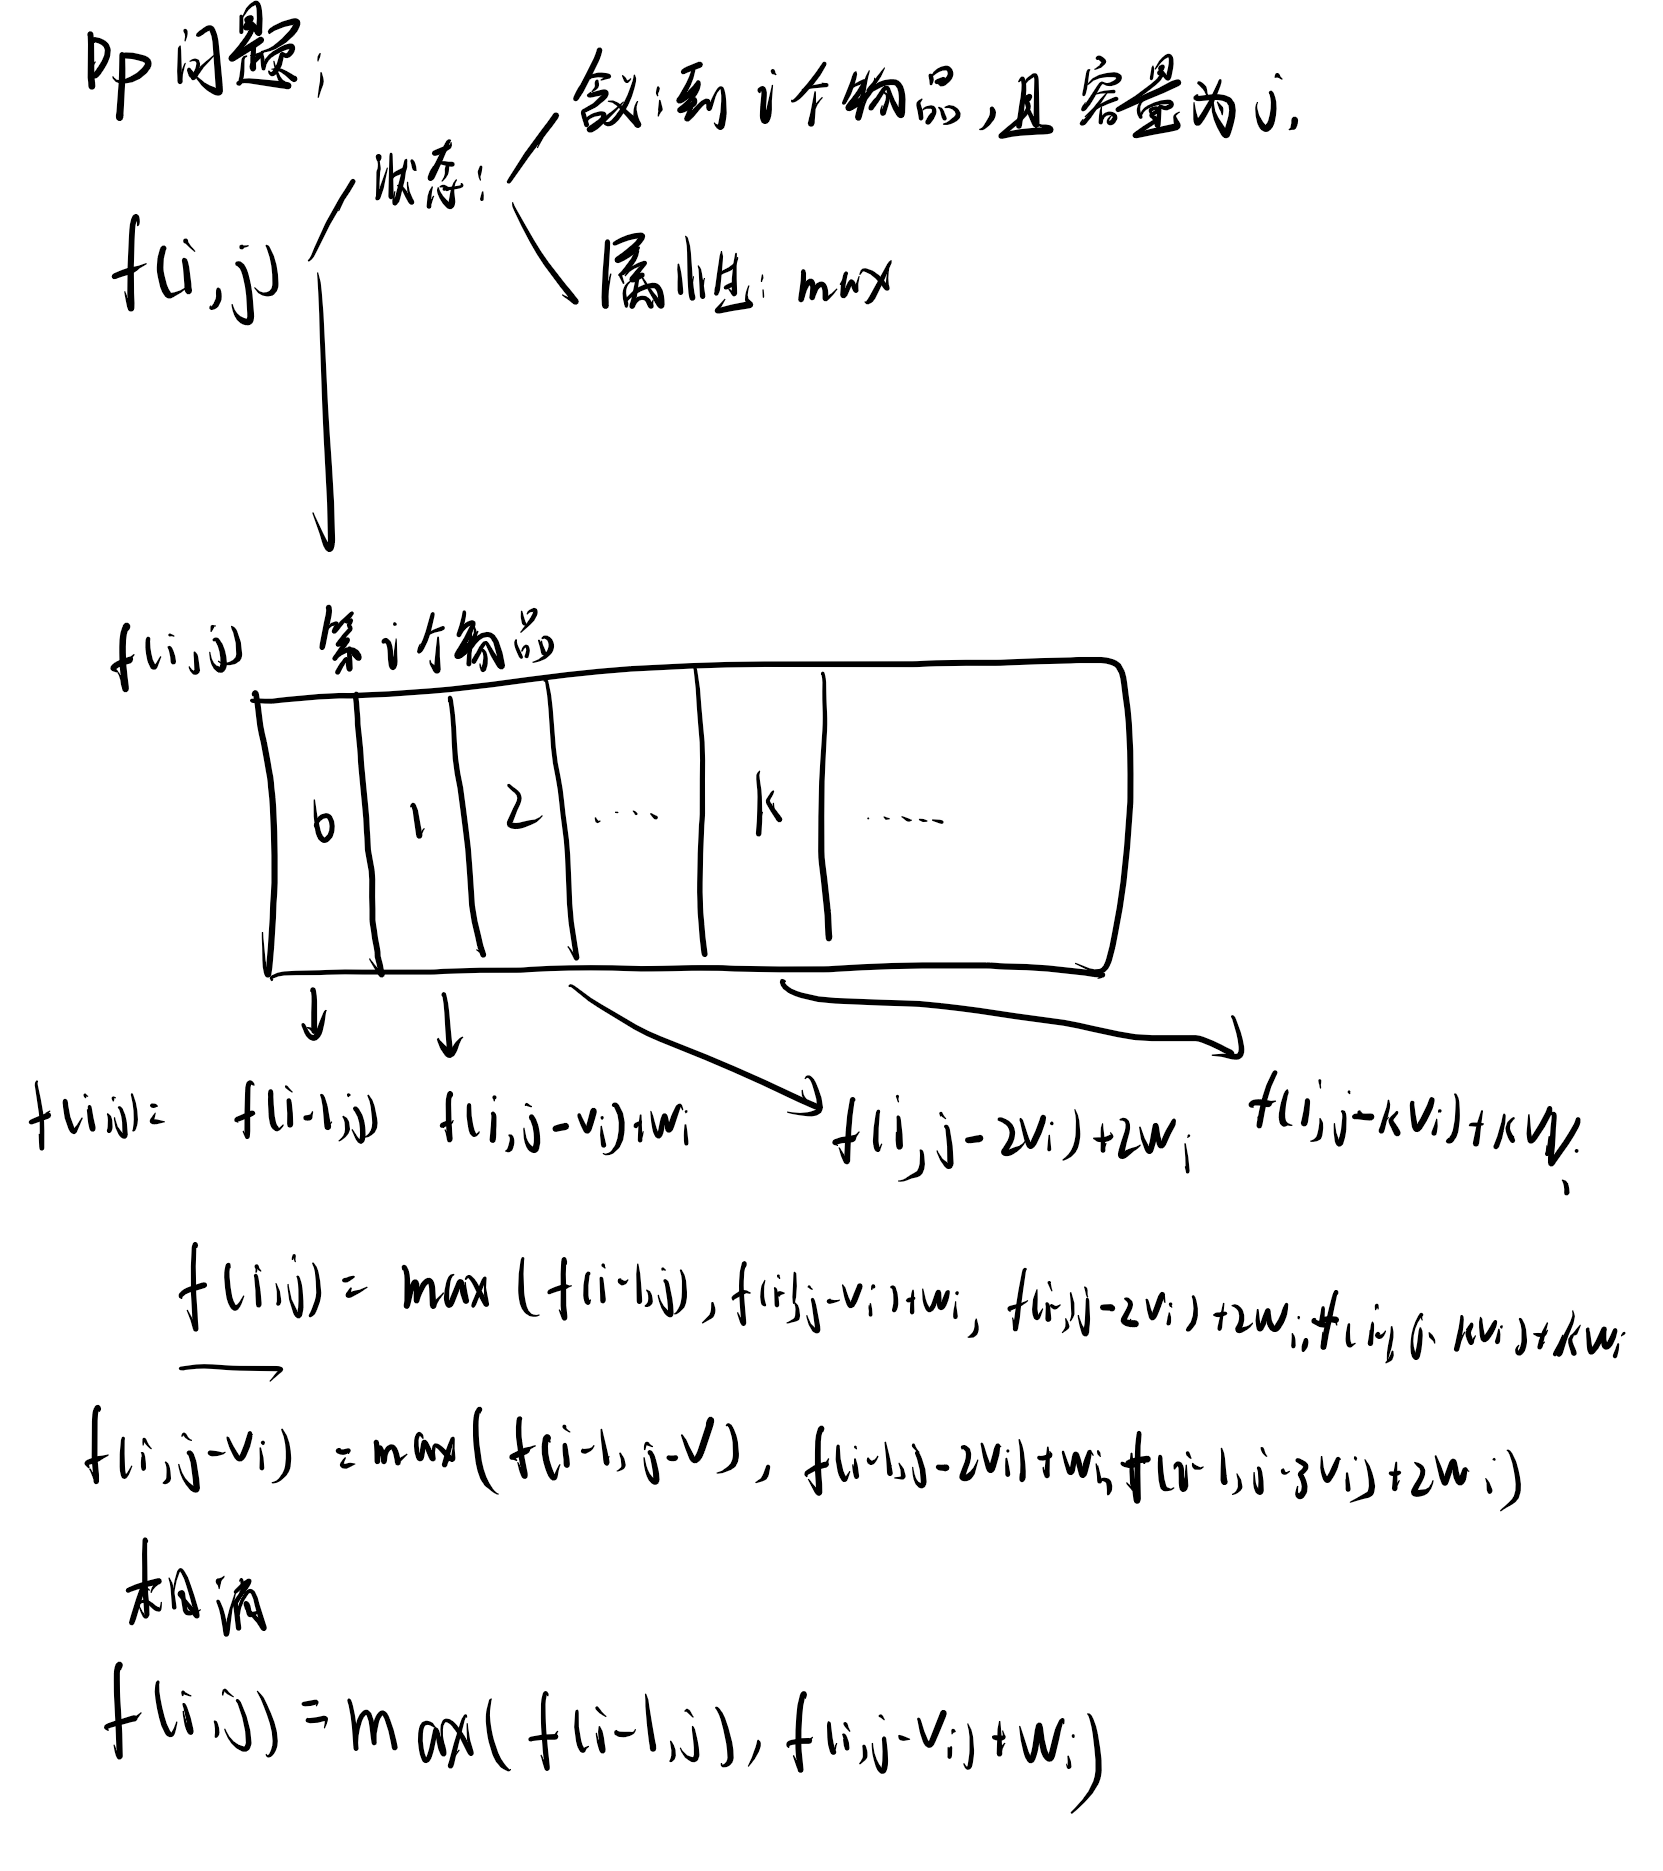 Dp 问题:
含义:到 i 个物品,且容量为 j.
状态:
f(i,j)
属性: max
f(i,j) 第 i 个物品
0 1 2 ..... k ......
f(i,j)= f(i-1,j) f(i,j-vi)+wi f(i,j-2vi)+2wi f(i,j-kvi)+kwi
f(i,j)= max (f(i-1,j), f(i-1,j-vi)+wi, f(i-1,j-2vi)+2wi, f(i-1,j-kvi)+kwi
f(i,j-vi) =max(f(i-1,j-V), f(i-1,j-2vi)+wi, f(i-1,j-3vi)+2wi)
相消
f(i,j)=max(f(i-1,j), f(i,j-vi)+wi)